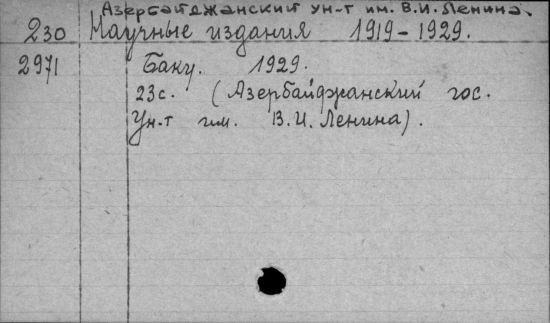 Азербайджанский ун-т им. В.И. Ленина.
230 Научные издания 1919-1929.
2971 Баку. 1929.
23с. (Азербайджанский гос.
Ун-т им. В.И. Ленина).